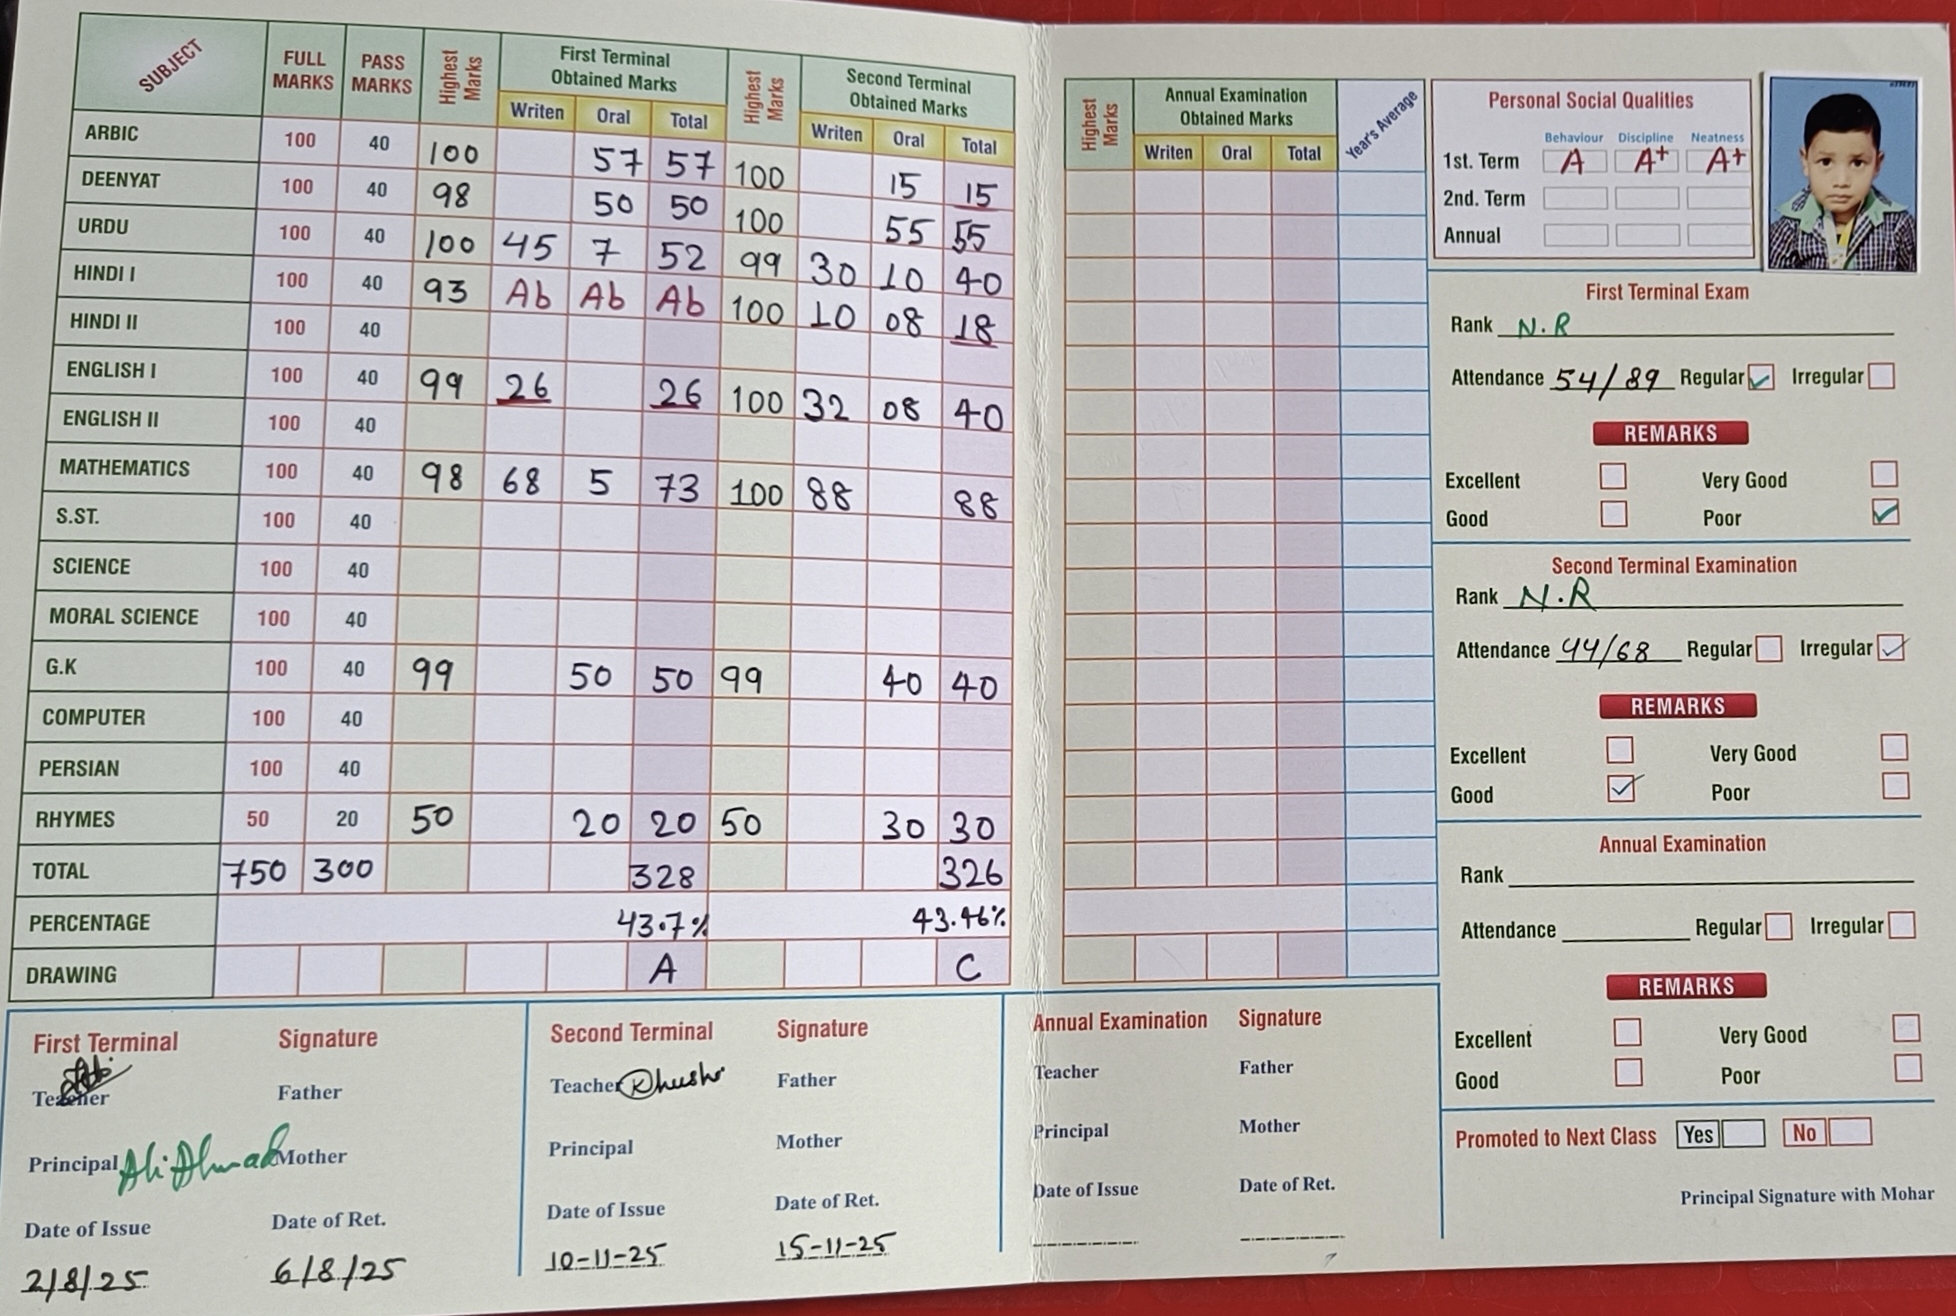 SUBJECT FULL MARKS PASS MARKS Highest Marks First Terminal Obtained Marks Writen Oral Total Highest Marks Second Terminal Obtained Marks Writen Oral Total
ARBIC 100 40 100 57 57 100 15 15
DEENYAT 100 40 98 50 50 100 55 55
URDU 100 40 100 45 7 52 99 30 10 40
HINDI I 100 40 93 Ab Ab Ab 100 10 08 18
HINDI II 100 40
ENGLISH I 100 40 99 26 26 100 32 08 40
ENGLISH II 100 40
MATHEMATICS 100 40 98 68 5 73 100 88 88
S.ST. 100 40
SCIENCE 100 40
MORAL SCIENCE 100 40
G.K 100 40 99 50 50 99 40 40
COMPUTER 100 40
PERSIAN 100 40
RHYMES 50 20 50 20 20 50 30 30
TOTAL 750 300 328 326
PERCENTAGE 43.7% 43.46%
DRAWING A C
First Terminal Signature
Teacher Father
Principal Ali Ahmad Mother
Date of Issue Date of Ret.
2/8/25 6/8/25
Second Terminal Signature
Teacher Khushi Father
Principal Mother
Date of Issue Date of Ret.
10-11-25 15-11-25
Highest Marks Annual Examination Obtained Marks Writen Oral Total Year's Average
Annual Examination Signature
Teacher Father
Principal Mother
Date of Issue Date of Ret.
Personal Social Qualities
Behaviour Discipline Neatness
1st. Term A A+ A+
2nd. Term
Annual
First Terminal Exam
Rank N.R
Attendance 54/89 Regular Irregular
REMARKS
Excellent Very Good
Good Poor
Second Terminal Examination
Rank N.R
Attendance 44/68 Regular Irregular
REMARKS
Excellent Very Good
Good Poor
Annual Examination
Rank
Attendance Regular Irregular
REMARKS
Excellent Very Good
Good Poor
Promoted to Next Class Yes No
Principal Signature with Mohar